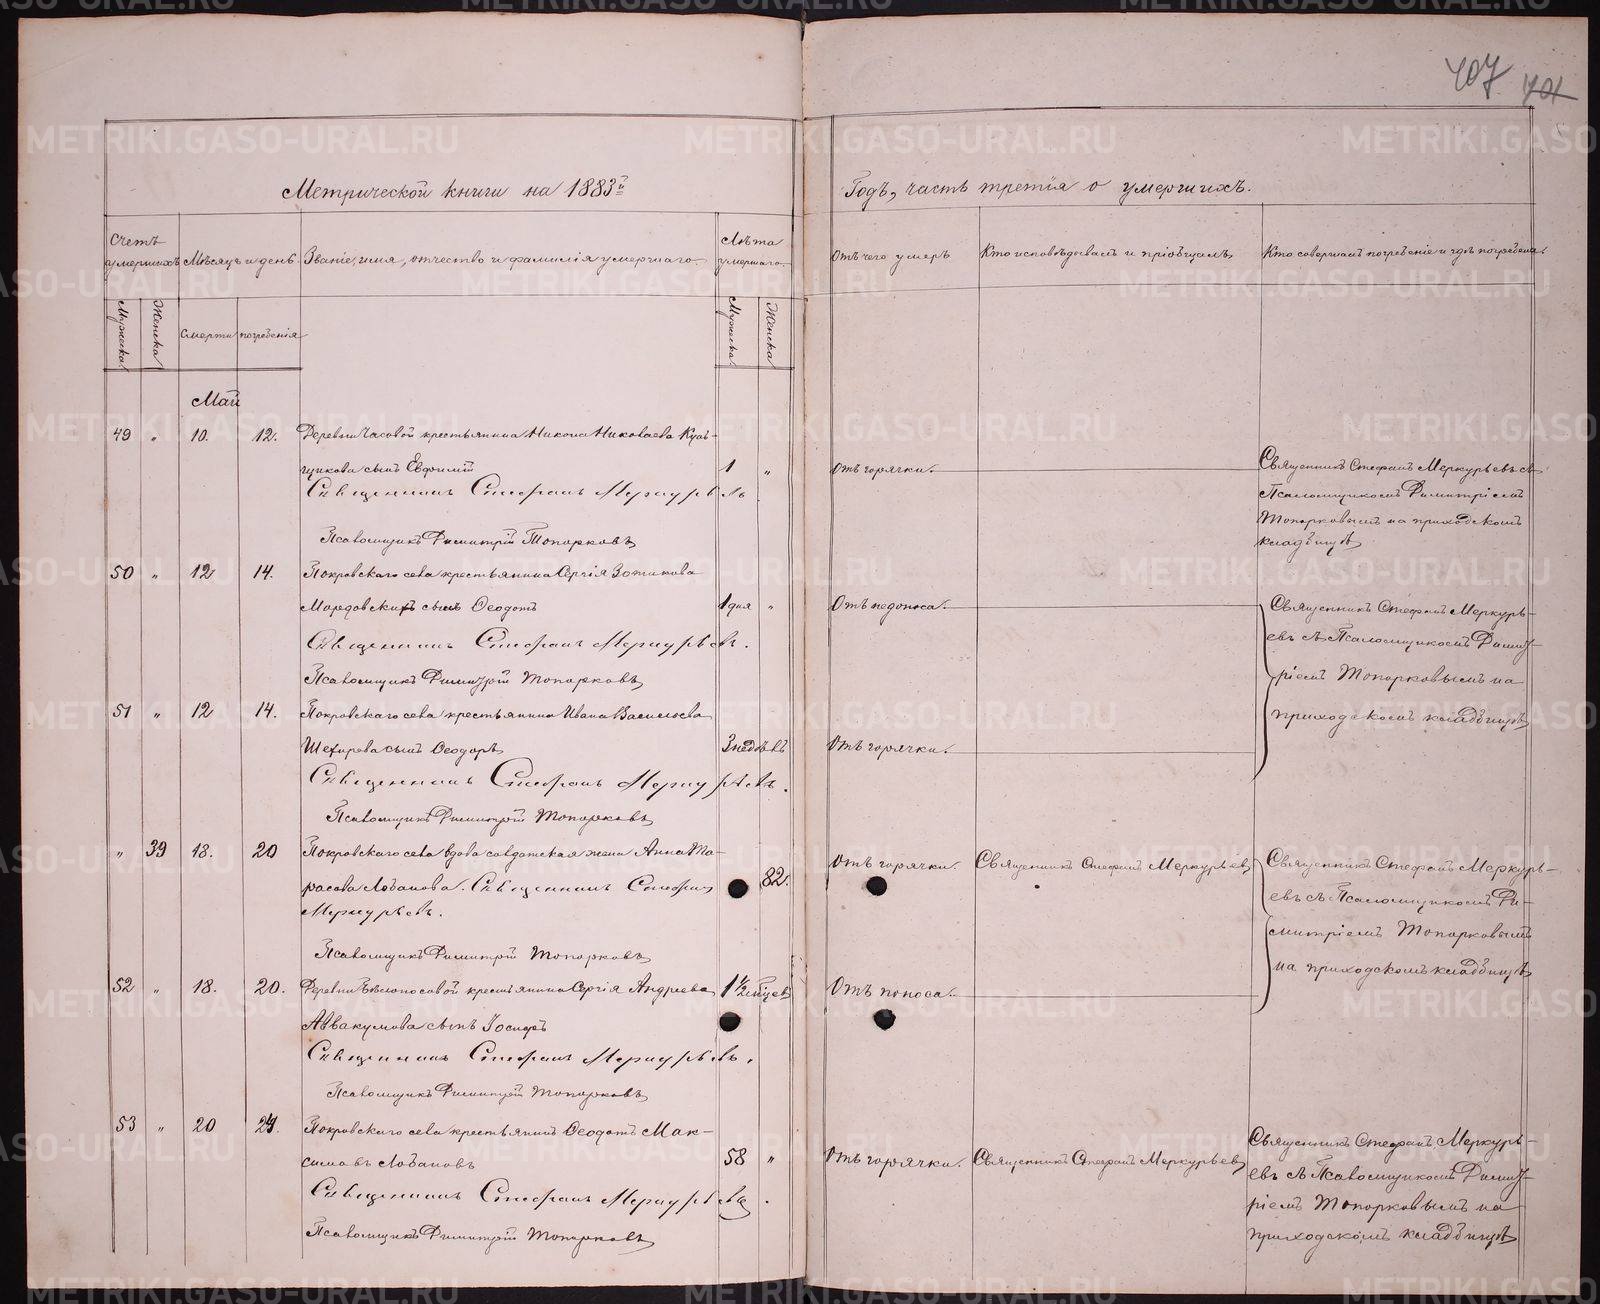 407 401
Метрической книги на 1883й
Годъ, часть третія о умершихъ.
Счетъ умершихъ
Мѣсяцъ и день
Званіе, имя, отчество и фамилія умершаго
Лѣта умершаго
Отъ чего умеръ
Кто исповѣдывалъ и пріобщалъ
Кто совершалъ погребеніе и гдѣ погребены.
Мужеска
Женска
Смерти
погребенія
Мужеска
Женска
Май
49 „ 10. 12. Деревни Часовой крестьянина Никона Николаева
сынъ Евфимій 1 „ Отъ горячки.
Священникъ Стефанъ Меркурьевъ
Псаломщикъ Димитрій Топорковъ
Священникъ Стефанъ Меркурьевъ съ
Псаломщикомъ Димитріемъ
Топорковымъ на приходскомъ
кладбищѣ
50 „ 12 14. Покровскаго села крестьянина Сергія Зотикова
Мордовскихъ сынъ Ѳеодотъ 1 дня „ Отъ недоноса.
Священникъ Стефанъ Меркурьевъ.
Псаломщикъ Димитрій Топорковъ
Священникъ Стефанъ Меркурь-
евъ съ Псаломщикомъ Димит-
ріемъ Топорковымъ на
приходскомъ кладбищѣ
51 „ 12 14. Покровскаго села крестьянина Ивана Васильева
сынъ Ѳеодоръ 3 недѣль Отъ горячки.
Священникъ Стефанъ Меркурьевъ.
Псаломщикъ Димитрій Топорковъ
„ 39 18. 20 Покровскаго села вдова солдатская жена Анна Та-
расова Лобанова. Священникъ Стефанъ 82. Отъ горячки. Священникъ Стефанъ Меркурьевъ
Меркурьевъ.
Псаломщикъ Димитрій Топорковъ
Священникъ Стефанъ Меркурь-
евъ съ Псаломщикомъ Ди-
митріемъ Топорковымъ
на приходскомъ кладбищѣ
52 „ 18. 20. Деревни Бѣлоносовой крестьянина Сергія Андреева 1 1/2 мѣсяцев Отъ поноса.
Аввакумова сынъ Іосифъ
Священникъ Стефанъ Меркурьевъ.
Псаломщикъ Димитрій Топорковъ
53 „ 20 24. Покровскаго села крестьянинъ Ѳеодотъ Мак-
симовъ Лобановъ 58 „ Отъ горячки. Священникъ Стефанъ Меркурьевъ
Священникъ Стефанъ Меркурьевъ.
Псаломщикъ Димитрій Топорковъ
Священникъ Стефанъ Меркурь-
евъ съ Псаломщикомъ Димит-
ріемъ Топорковымъ на
приходскомъ кладбищѣ
METRIKI.GASO-URAL.RU